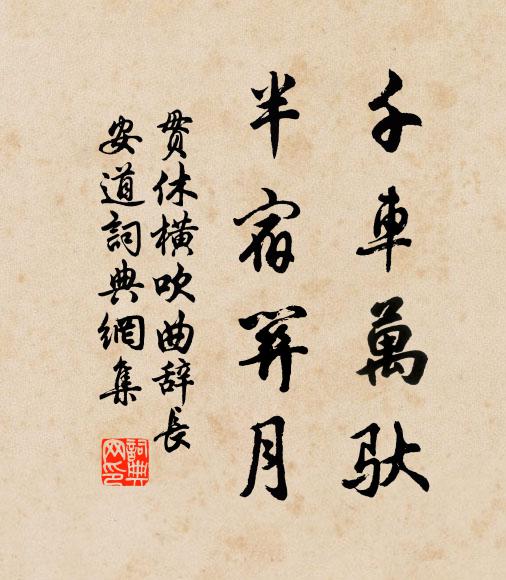 千車萬馱
半宿關月
貫休橫吹曲辞長
安道詞典網集
詞典
网印